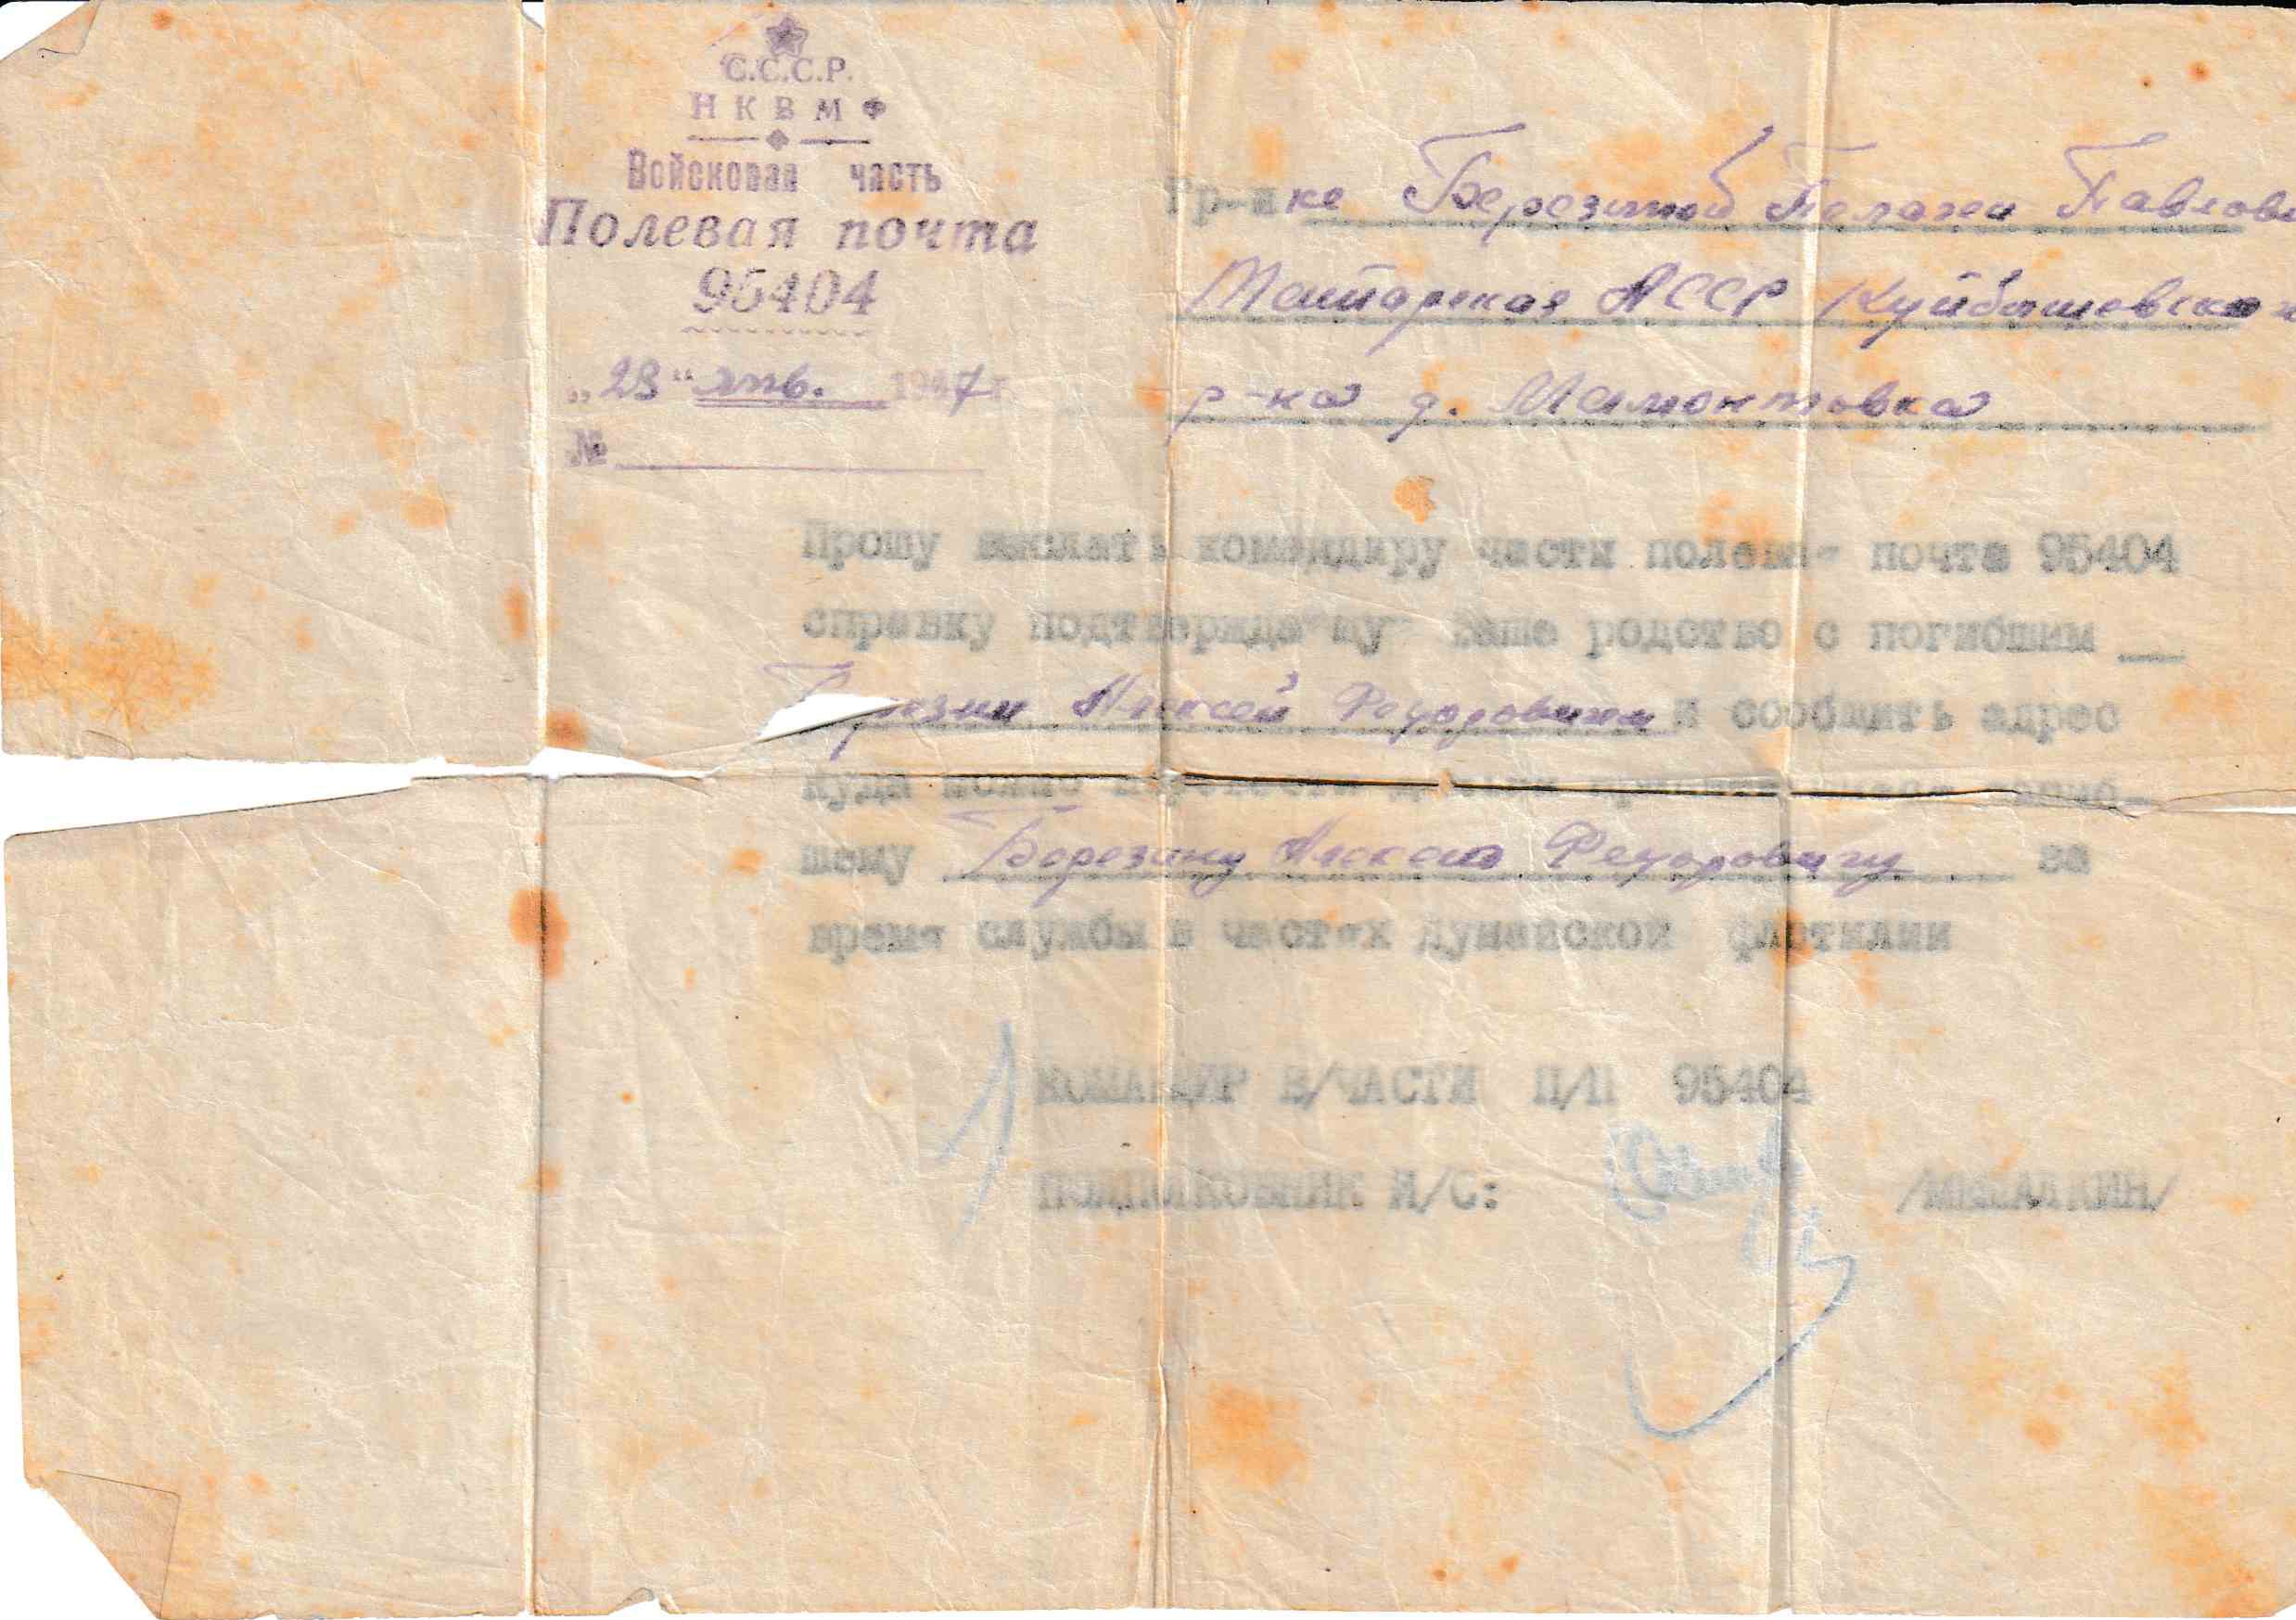 С.С.С.Р.
НКВМФ
Войсковая часть
Полевая почта
95404
„29" янв. 1947г
№
Гр-нке Березиной Пелагеи Павлов
Татарская АССР Куйбышевско
р-на д. Мамонтовка
Прошу выслать командиру части полевая почта 95404
справку подтверждающую Ваше родство с погибшим
Березин Алексей Федоровичем и сообщить адрес
куда можно
шему Березину Алексею Федоровичу за
время службы в частях Дунайской флотилии
КОМАНДИР В/ЧАСТИ П/П 95404
ПОДПОЛКОВНИК И/С: /МИШАЛКИН/